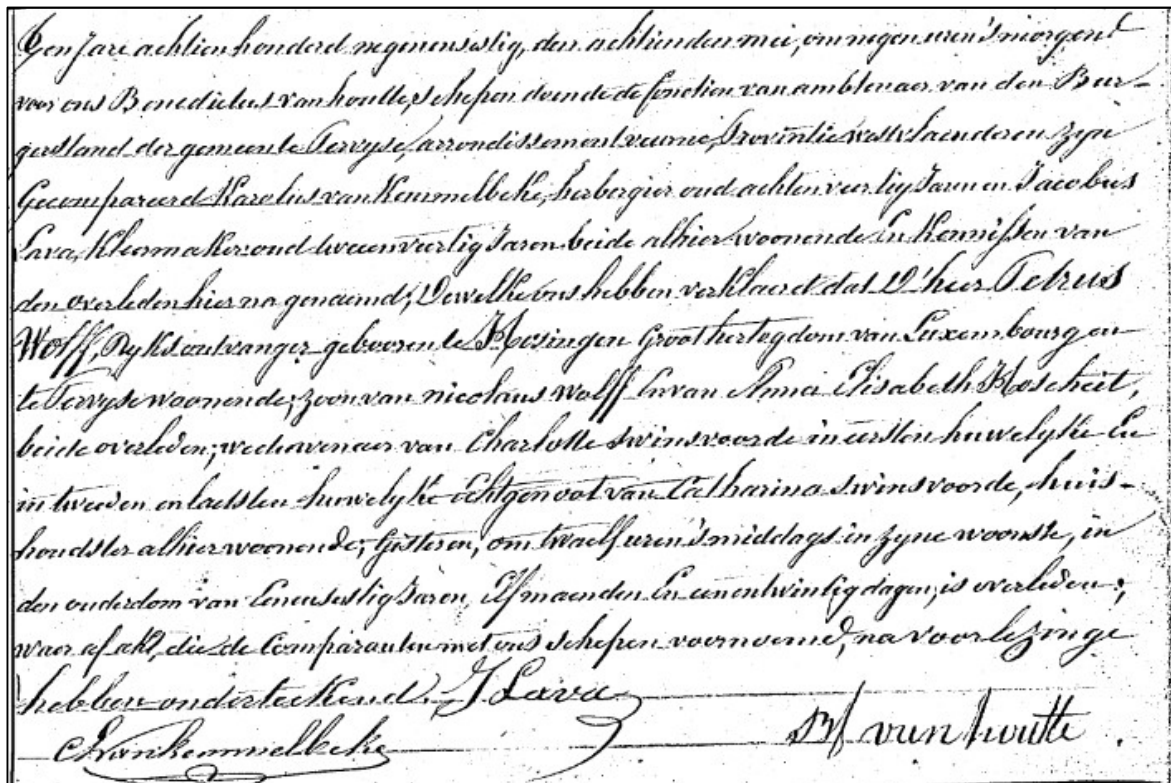 Den Jare achtien honderd negenensestig, den achtienden mei, om negen uren 's morgens
voor ons Benedictus vanhoutte, schepen doende de fonctien van ambtenaer van den Bur-
gerstand der gemeente Pervyse, arrondissement veurne, Provintie westvlaenderen Zyn
Gecompareerd Karolus vanKemmelbeke, herbergier oud achtenveertig Jaren en Jacobus
Lava, Kleermaker oud tweeenveertig Jaren beide alhier woonende En Kennissen van
den overleden hier na genaemd; Dewelke ons hebben verklaerd dat D'heer Petrus
Wolff, Ryks ontvanger gebooren te Hosingen Groothertogdom van Luxembourg en
te Pervyse woonende; zoon van nicolaus Wolff En van Anna Elisabeth Hoscheit,
beide overleden; weduwenaer van Charlotte swinsvoorde in eersten huwelyke En
in tweeden en laetsten huwelyke Echtgenoot van Catharina swinsvoorde, huis-
houdster alhier woonende; Gisteren, om twaelf uren 's middags in zyne woonste, in
den ouderdom van Eenensestig Jaren, Elf maenden En eenentwintig dagen, is overleden;
waer af akt, die de Comparanten met ons schepen voornoemd, na voorlezinge
hebben onderteekend. J Lava
C Vankemmelbeke B vanhoutte